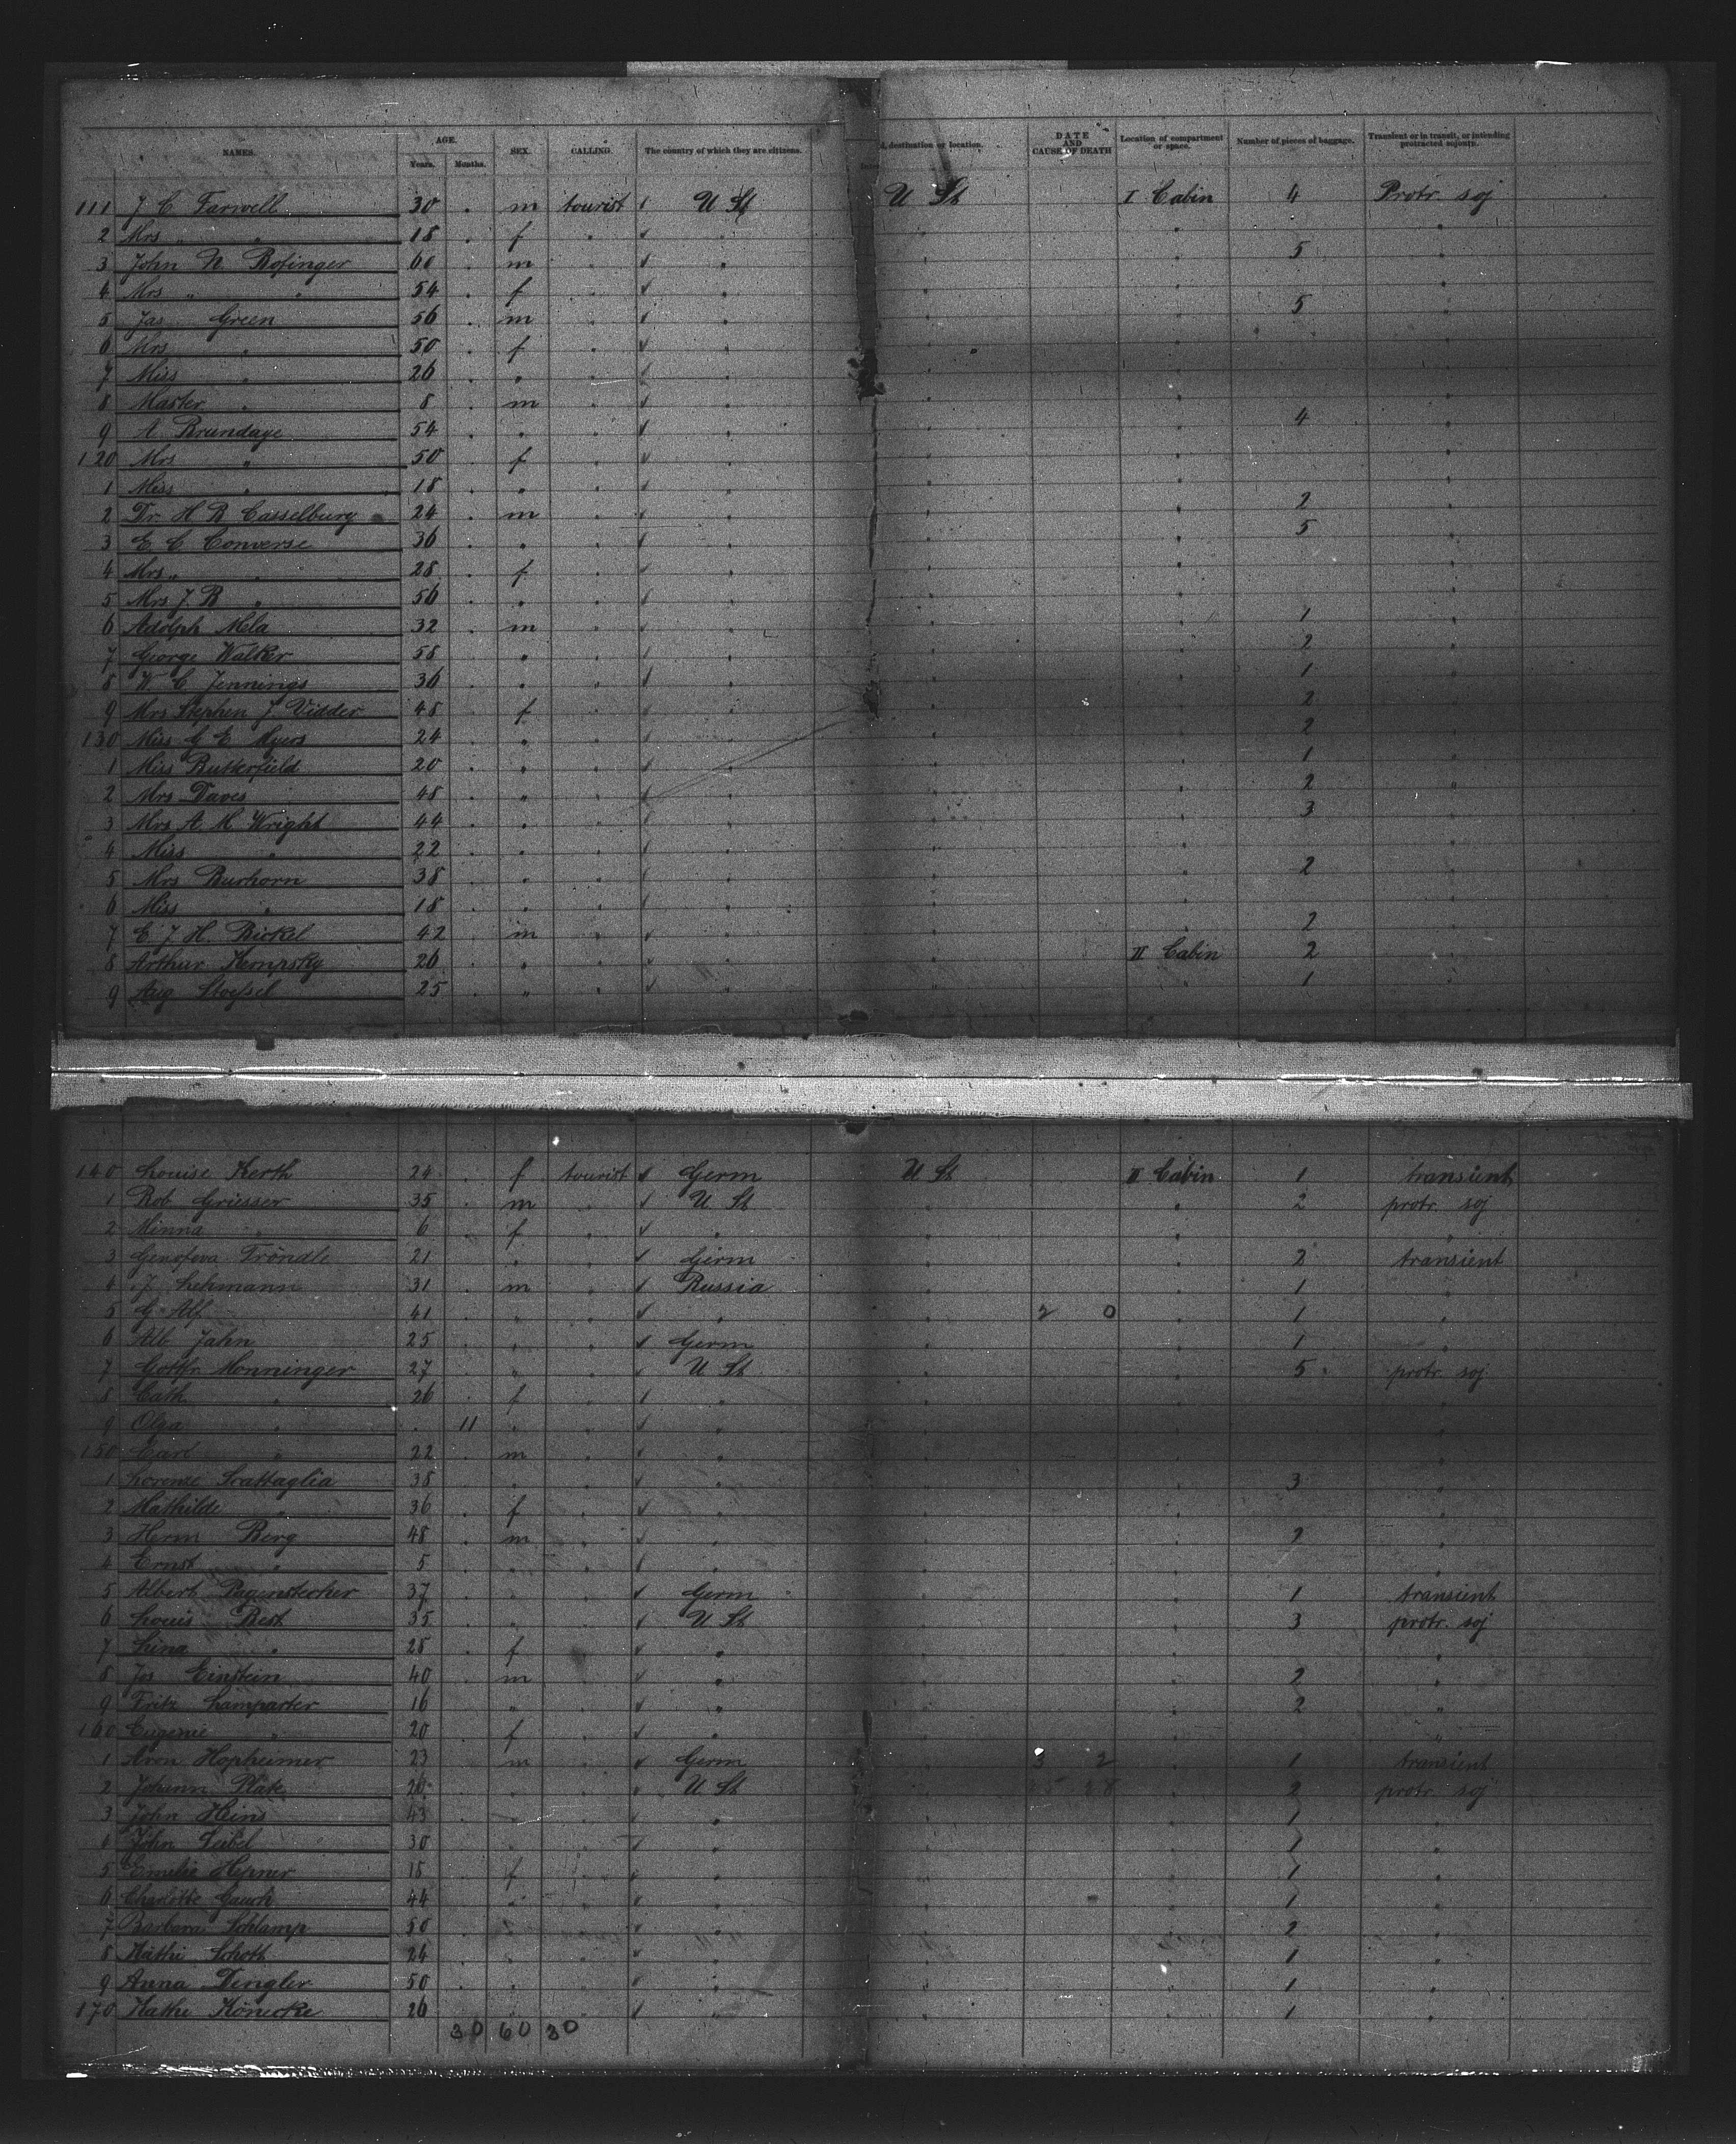 NAMES. AGE. Years. Months. SEX. CALLING. The country of which they are citizens. d, destination or location. DATE AND CAUSE OF DEATH Location of compartment or space. Number of pieces of baggage. Transient or in transit, or intending protracted sojourn.
111 J C Farwell 30 . m tourist U St U St I Cabin 4 Protr. soj
2 Mrs " " 18 . f " " " " "
3 John N Bofinger 60 . m " " " " 5 "
4 Mrs " " 54 . f " " " " "
5 Jas Green 56 . m " " " " 5 "
6 Mrs " 50 . f " " " " "
7 Miss " 26 . " " " " " "
8 Master " 8 . m " " " " "
9 A Brundage 54 . " " " " " 4 "
120 Mrs " 50 . f " " " " "
1 Miss " 18 . " " " " " "
2 Dr H B Casselburg 24 . m " " " " 2 "
3 E C Converse 36 . " " " " " 5 "
4 Mrs " " 28 . f " " " " "
5 Mrs J. B " 56 . " " " " " "
6 Adolph Mela 32 . m " " " " 1 "
7 George Walker 58 . " " " " " 2 "
8 W. C Jennings 36 . " " " " " 1 "
9 Mrs Stephen J Vidder 48 . f " " " " 2 "
130 Miss G E Myers 24 . " " " " " 2 "
1 Miss Butterfield 20 . " " " " " 1 "
2 Mrs Daves 48 . " " " " " 2 "
3 Mrs A. M. Wright 44 . " " " " " 3 "
4 Miss " 22 . " " " " " "
5 Mrs Burhorn 38 . " " " " " 2 "
6 Miss " 18 . " " " " " "
7 E. J. H. Bickel 42 . m " " " " 2 "
8 Arthur Kempsky 26 . " " " " II Cabin 2 "
9 Aug Stoessel 25 . " " " " " 1 "
140 Louise Kerth 24 . f tourist Germ U St II Cabin 1 transient
1 Rob Griesser 35 . m " U St " " 2 protr. soj
2 Minna " 6 . f " " " " "
3 Genofeva Tröndle 21 . " " Germ " " 2 transient
4 J. Lehmann 31 . m " Russia " " 1 "
5 G. Alf 41 . " " " " 2 0 " 1 "
6 Alb Jahn 25 . " " Germ " " 1 "
7 Gottfr. Monninger 27 . " " U St " " 5 protr. soj
8 Cath " 26 . f " " " " "
9 Olga " . 11 " " " " " "
150 Carl " 22 . m " " " " "
1 Lorenz Scattaglia 38 . " " " " " 3 "
2 Mathilde " 36 . f " " " " "
3 Herm Berg 48 . m " " " " 2 "
4 Ernst " 5 . " " " " " "
5 Albert Pagenstecher 37 . " " Germ " " 1 transient
6 Louis Best 35 . " " U St " " 3 protr. soj
7 Lina " 28 . f " " " " "
8 Jos Einstein 40 . m " " " " 2 "
9 Fritz Lamparter 16 . " " " " " 2 "
160 Eugenie " 20 . f " " " " "
1 Aron Hopheimer 23 . m " Germ " 2 " 1 transient
2 Johann Plate 26 . " " U St " " 2 protr. soj
3 John Heins 43 . " " " " " 1 "
4 John Seibel 30 . " " " " " 1 "
5 Emelie Hepner 18 . f " " " " 1 "
6 Charlotte Gauch 44 . " " " " " 1 "
7 Barbara Schlamp 50 . " " " " " 2 "
8 Käthi Schott 24 . " " " " " 1 "
9 Anna Dengler 50 . " " " " " 1 "
170 Kathe Könecke 26 . " " " " " 1 "
30 60 30